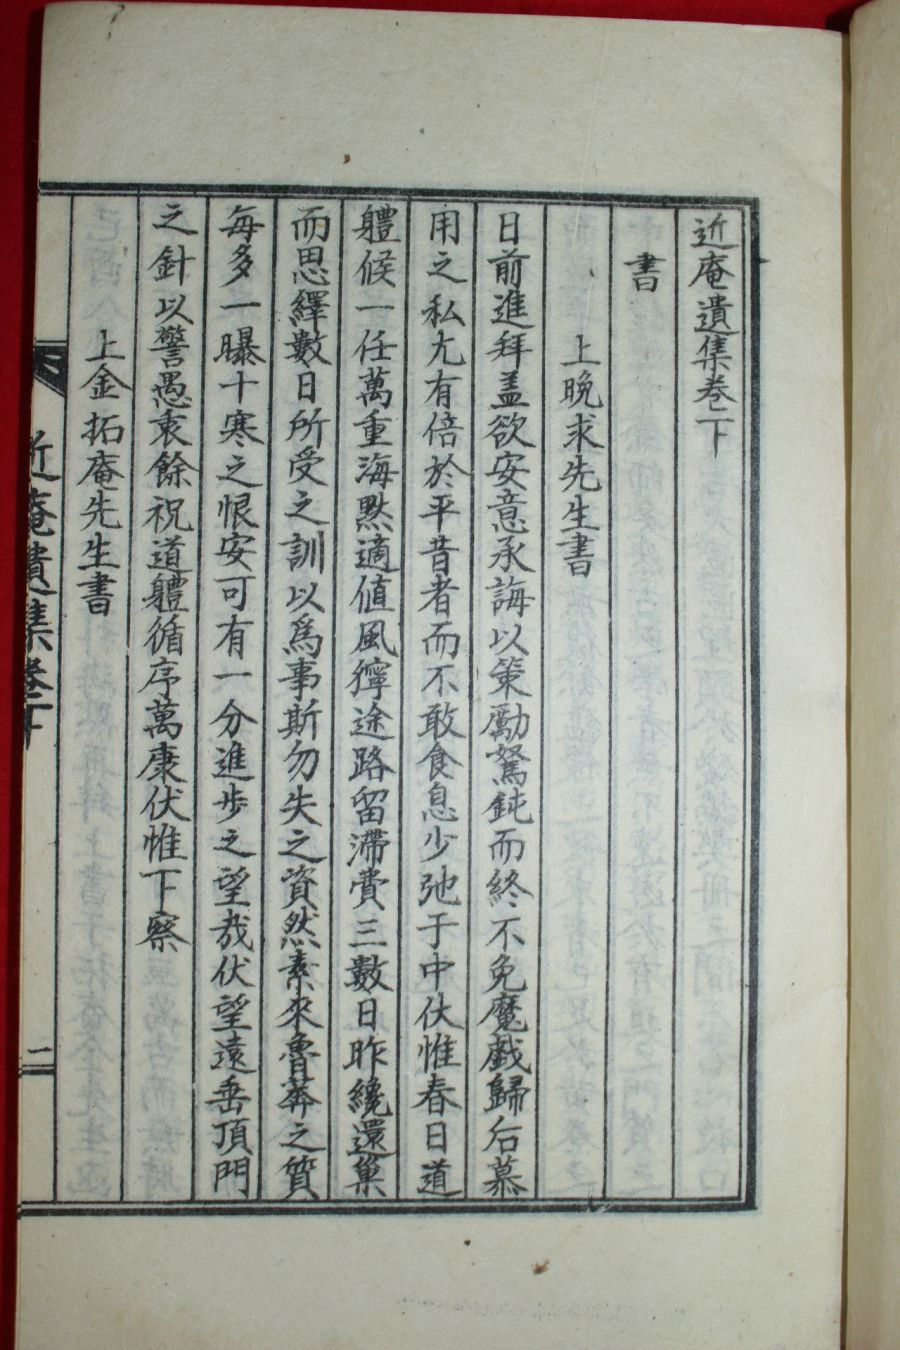 近庵遺集卷下
書
上晩求先生書
日前進拜盖欲安意承誨以策勵駑鈍而終不免魔戱歸后慕
用之私尢有倍於平昔者而不敢食息少弛于中伏惟春日道
軆候一任萬重海黙適値風獰途路留滯費三數日昨纔還巢
而思繹數日所受之訓以爲事斯勿失之資然素來魯莽之質
每多一曝十寒之恨安可有一分進步之望哉伏望遠垂頂門
之針以警愚衷餘祝道軆循序萬康伏惟下察
上金拓庵先生書
近庵遺集卷下
二